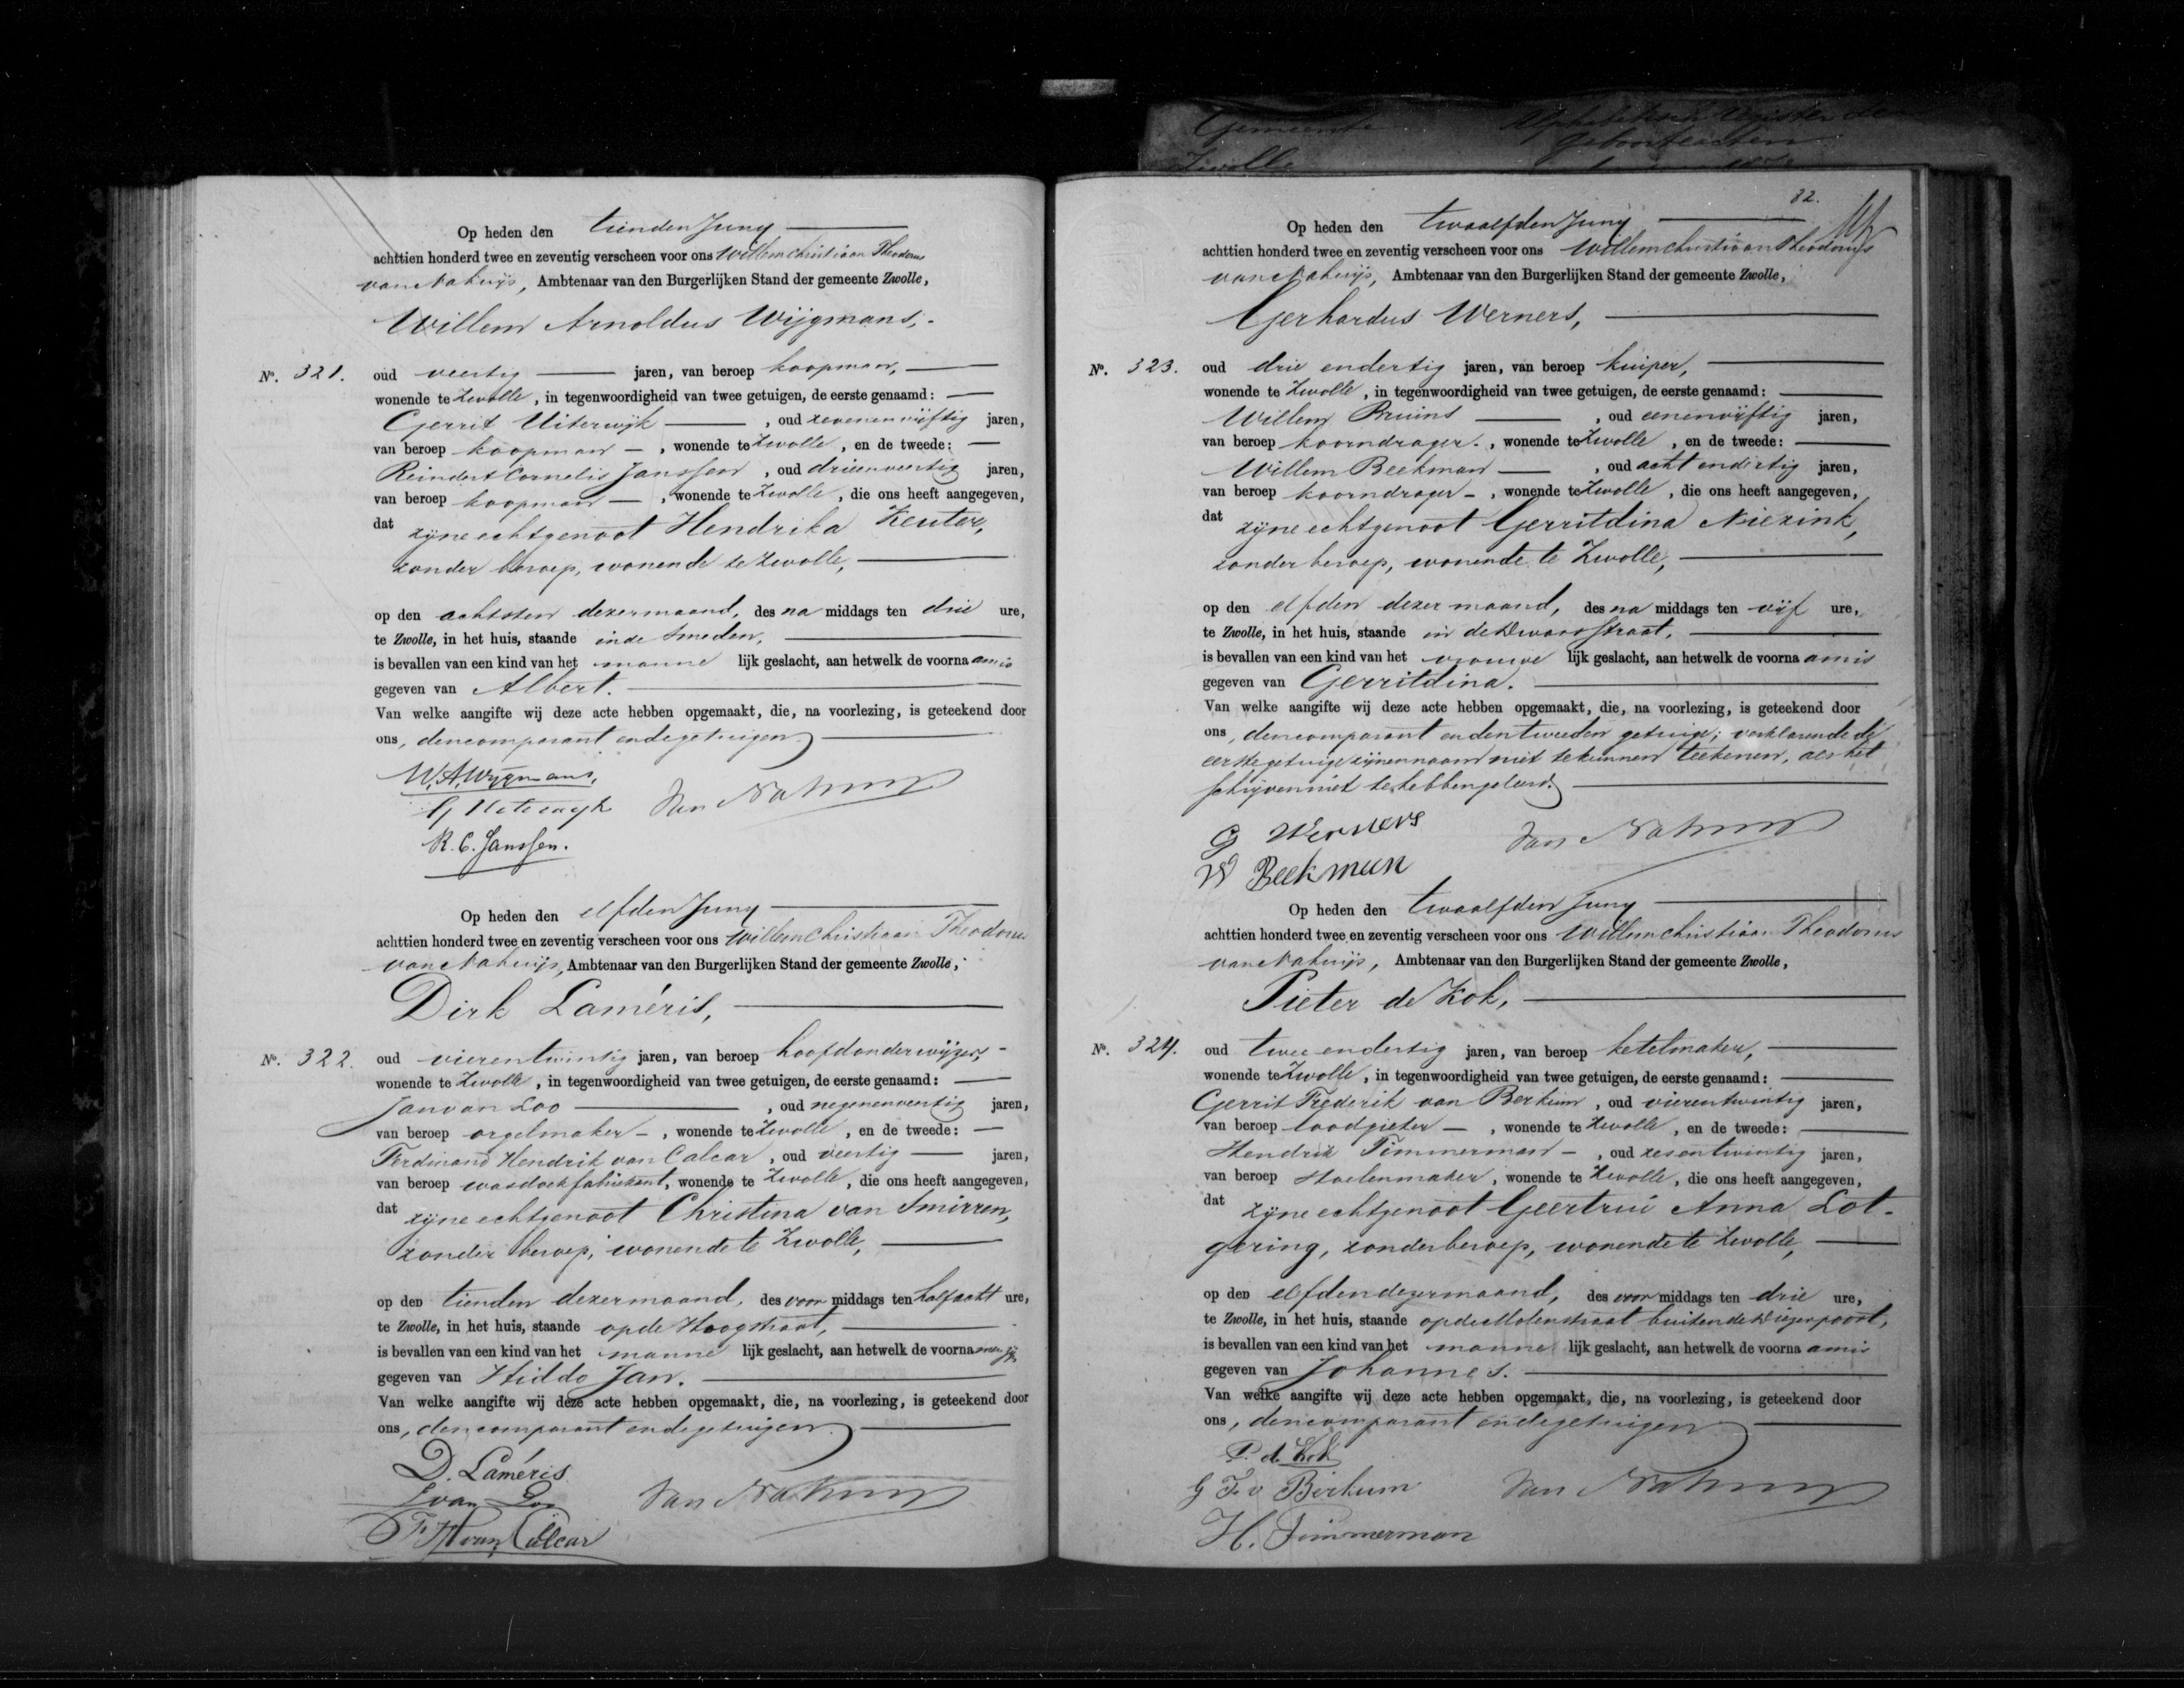 Gemeente Alphabetisch Register der
Zwolle geboorteacten
Op heden den tienden Juny
achttien honderd twee en zeventig verscheen voor ons Willem Christiaan Theodorus
van Nahuijs, Ambtenaar van den Burgerlijken Stand der gemeente Zwolle,
Willem Arnoldus Wijgmans,
No. 321. oud veertig jaren, van beroep koopman,
wonende te Zwolle, in tegenwoordigheid van twee getuigen, de eerste genaamd:
Gerrit Uiterwijk, oud zevenenvijftig jaren,
van beroep koopman, wonende te Zwolle, en de tweede:
Reindert Cornelis Janssen, oud drieenveertig jaren,
van beroep koopman, wonende te Zwolle, die ons heeft aangegeven,
dat zijne echtgenoot Hendrika Keuter,
zonder beroep, wonende te Zwolle,
op den achtsten dezer maand, des na middags ten drie ure,
te Zwolle, in het huis, staande in de Smeden,
is bevallen van een kind van het manne lijk geslacht, aan hetwelk de voorna am is
gegeven van Albert.
Van welke aangifte wij deze acte hebben opgemaakt, die, na voorlezing, is geteekend door
ons, den comparant en de getuigen.
W. A. Wijgmans,
G Uiterwijk Van Nahuijs
R. C. Janssen.
Op heden den elfden Juny
achttien honderd twee en zeventig verscheen voor ons Willem Christiaan Theodorus
van Nahuijs, Ambtenaar van den Burgerlijken Stand der gemeente Zwolle,
Dirk Laméris,
No. 322. oud vierentwintig jaren, van beroep hoofdonderwijzer,
wonende te Zwolle, in tegenwoordigheid van twee getuigen, de eerste genaamd:
Jan van Loo, oud negenenveertig jaren,
van beroep orgelmaker, wonende te Zwolle, en de tweede:
Ferdinand Hendrik van Calcar, oud veertig jaren,
van beroep wasdoekfabrikant, wonende te Zwolle, die ons heeft aangegeven,
dat zijne echtgenoot Christina van Smirren,
zonder beroep, wonende te Zwolle,
op den tienden dezer maand, des voor middags ten half acht ure,
te Zwolle, in het huis, staande op de Hoogstraat,
is bevallen van een kind van het manne lijk geslacht, aan hetwelk de voorna men zijn
gegeven van Hiddo Jan.
Van welke aangifte wij deze acte hebben opgemaakt, die, na voorlezing, is geteekend door
ons, den comparant en de getuigen.
D. Laméris
J van Loo Van Nahuijs
F. H van Calcar
32.
Op heden den twaalfden Juny
achttien honderd twee en zeventig verscheen voor ons Willem Christiaan Theodorus
van Nahuijs, Ambtenaar van den Burgerlijken Stand der gemeente Zwolle,
Gerhardus Werners,
No. 323. oud drie en dertig jaren, van beroep kuiper,
wonende te Zwolle, in tegenwoordigheid van twee getuigen, de eerste genaamd:
Willem Bruins, oud eenenvijftig jaren,
van beroep koorndrager, wonende te Zwolle, en de tweede:
Willem Beekman, oud acht en dertig jaren,
van beroep koorndrager, wonende te Zwolle, die ons heeft aangegeven,
dat zijne echtgenoot Gerritdina Niezink,
zonder beroep, wonende te Zwolle,
op den elfden dezer maand, des na middags ten vijf ure,
te Zwolle, in het huis, staande in de Dwarsstraat,
is bevallen van een kind van het vrouwe lijk geslacht, aan hetwelk de voorna am is
gegeven van Gerritdina.
Van welke aangifte wij deze acte hebben opgemaakt, die, na voorlezing, is geteekend door
ons, den comparant en den tweeden getuige; verklarende de
eerste getuige zijnen naam niet te kunnen teekenen, als het
schrijven niet te hebben geleerd.
G Werners Van Nahuijs
W Beekman
Op heden den twaalfden Juny
achttien honderd twee en zeventig verscheen voor ons Willem Christiaan Theodorus
van Nahuijs, Ambtenaar van den Burgerlijken Stand der gemeente Zwolle,
Pieter de Kok,
No. 324. oud twee en dertig jaren, van beroep ketelmaker,
wonende te Zwolle, in tegenwoordigheid van twee getuigen, de eerste genaamd:
Gerrit Frederik van Berkum, oud vierentwintig jaren,
van beroep loodgieter, wonende te Zwolle, en de tweede:
Hendrik Timmerman, oud zesentwintig jaren,
van beroep stoelenmaker, wonende te Zwolle, die ons heeft aangegeven,
dat zijne echtgenoot Geertrui Anna Lot-
gering, zonder beroep, wonende te Zwolle,
op den elfden dezer maand, des voor middags ten drie ure,
te Zwolle, in het huis, staande op de Molenstraat buiten de Diezerpoort,
is bevallen van een kind van het manne lijk geslacht, aan hetwelk de voorna am is
gegeven van Johannes.
Van welke aangifte wij deze acte hebben opgemaakt, die, na voorlezing, is geteekend door
ons, den comparant en de getuigen
P. de Kok
G F v Berkum Van Nahuijs
H. Timmerman